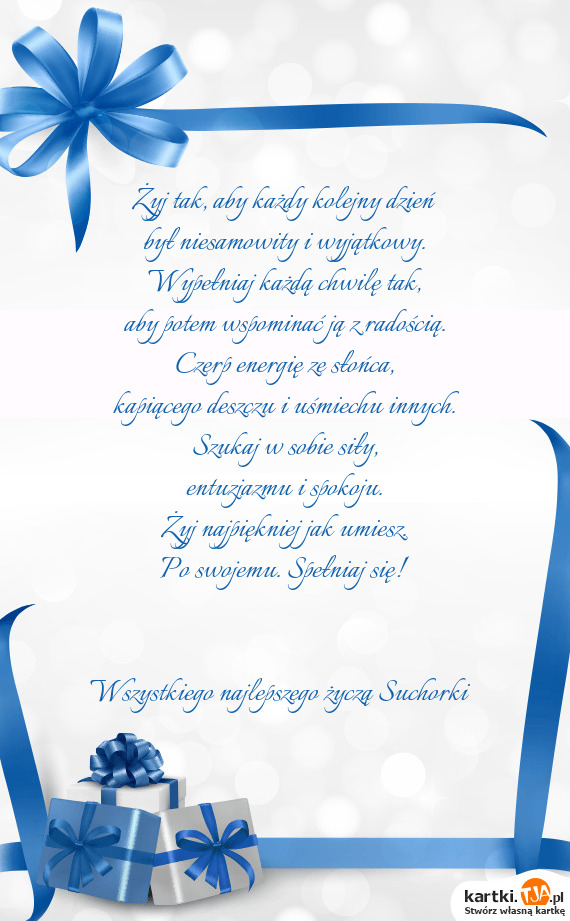 Żyj tak, aby każdy kolejny dzień
był niesamowity i wyjątkowy.
Wypełniaj każdą chwilę tak,
aby potem wspominać ją z radością.
Czerp energię ze słońca,
kapiącego deszczu i uśmiechu innych.
Szukaj w sobie siły,
entuzjazmu i spokoju.
Żyj najpiękniej jak umiesz.
Po swojemu. Spełniaj się!
Wszystkiego najlepszego życzą Suchorki
kartki.TJA.pl
Stwórz własną kartkę